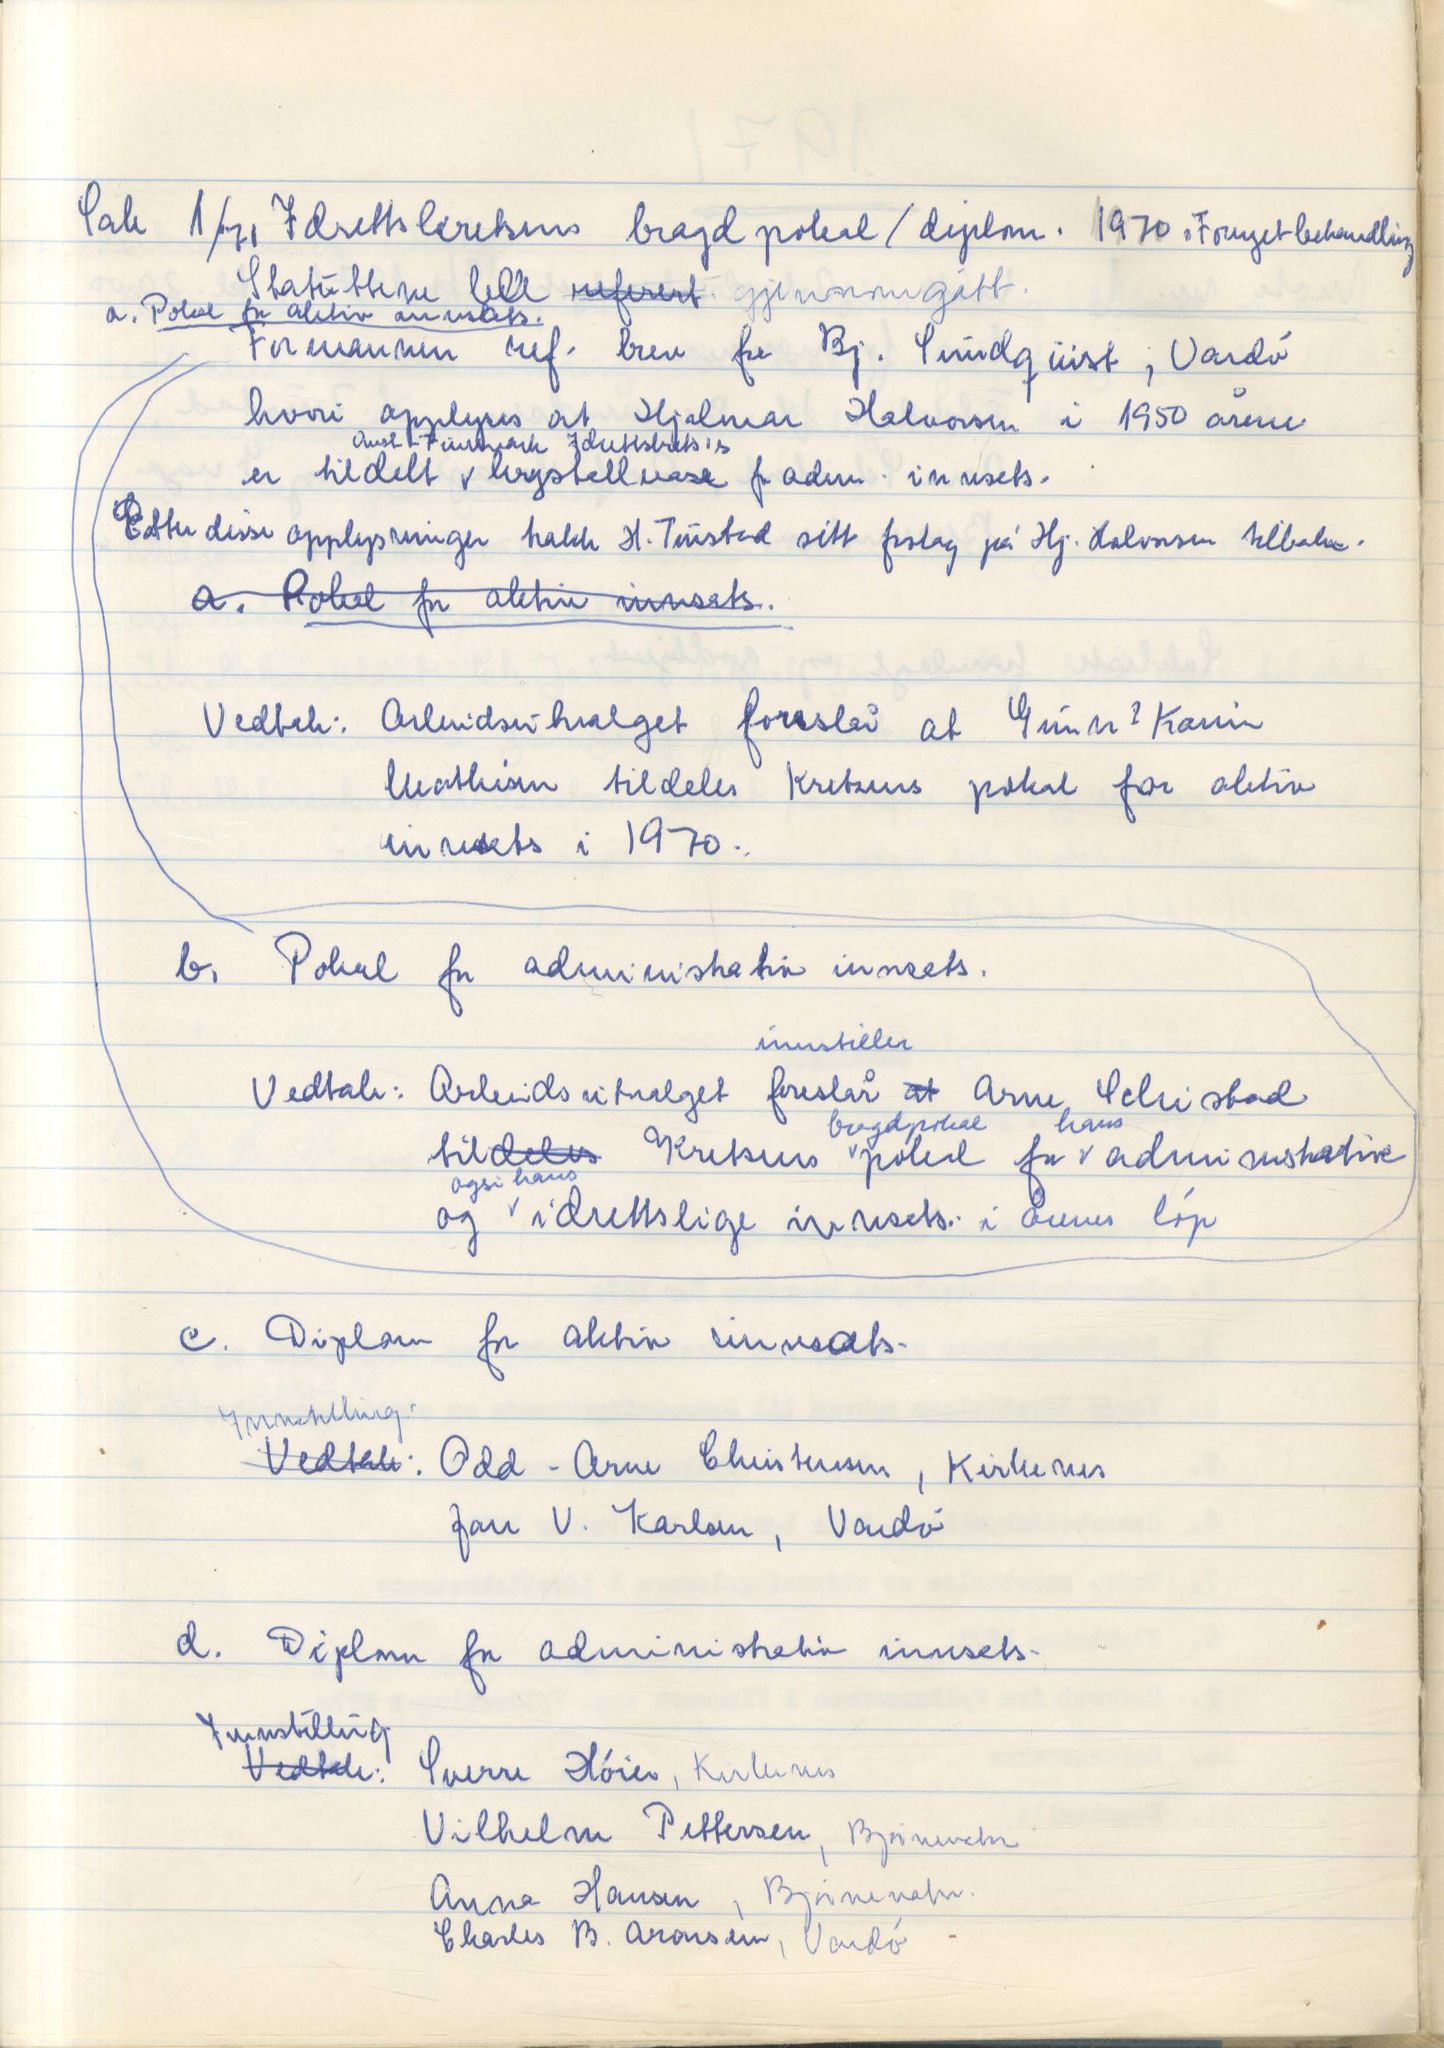 Sak 1/71 Idrettskretsens bragdpokal/diplom. 1970. Fornyet behandling
Statuttene ble referert gjennomgått.
a. Pokal for aktiv innsats.
Formannen ref. brev fra Bj. Sundquist, Vardø
hvori opplyses at Hjalmar Halvorsen i 1950 årene
Aust-Finnmark Idrettskrets's
er tildelt v krystallvase for adm. innsats.
Etter disse opplysninger trakk H. sitt forslag på Hj. Halvorsen tilbake.
a. Pokal for aktiv innsats.
Vedtak: Arbeidsutvalget foreslår at Gunn? Karin
Mathisen tildeles Kretsens pokal for aktiv
innsats i 1970.
b. Pokal for administrativ innsats.
innstiller
Vedtak: Arbeidsutvalget foreslår at Arne Schistad
bragdpokal hans
tildeles Kretsens v pokal for v administrative
også hans
og v idrettslige innsats i årenes løp
c. Diplom for aktiv innsats.
Innstilling:
Vedtak: Odd-Arne Christensen, Kirkenes
Jan V. Karlsen, Vardø
d. Diplom for administrativ innsats.
Innstilling
Vedtak: Sverre Kirkenes
Vilhelm Pettersen, Bjørnevatn
Anna Hansen, Bjørnevatn.
Charles B. Aronsen, Vardø